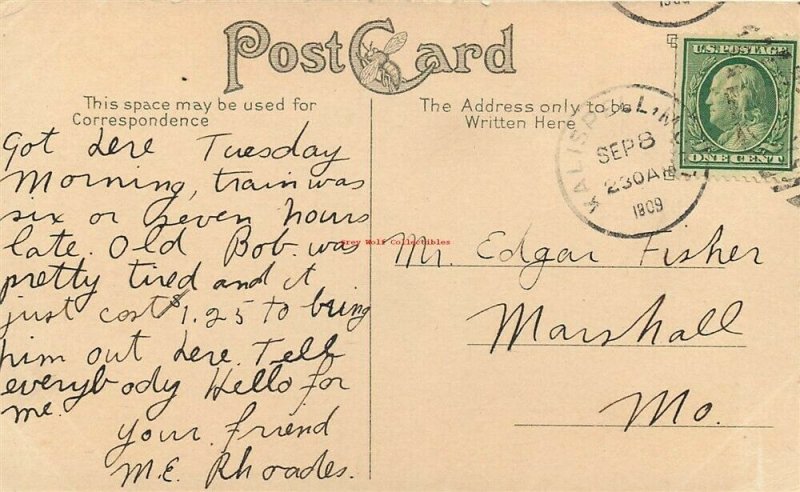 1909
Post Card
U.S. POSTAGE
ONE CENT
KALISPELL, MONT.
SEP 8
230 AM
1909
This space may be used for
Correspondence
The Address only to be
Written Here
Got here Tuesday
Morning, train was
six or seven hours
late. Old Bob. was
pretty tired and it
just cost $1.25 to bring
him out here. Tell
everybody Hello for
me.
your friend
M.E. Rhoades.
Grey Wolf Collectibles
Mr. Edgar Fisher
Marshall
Mo.